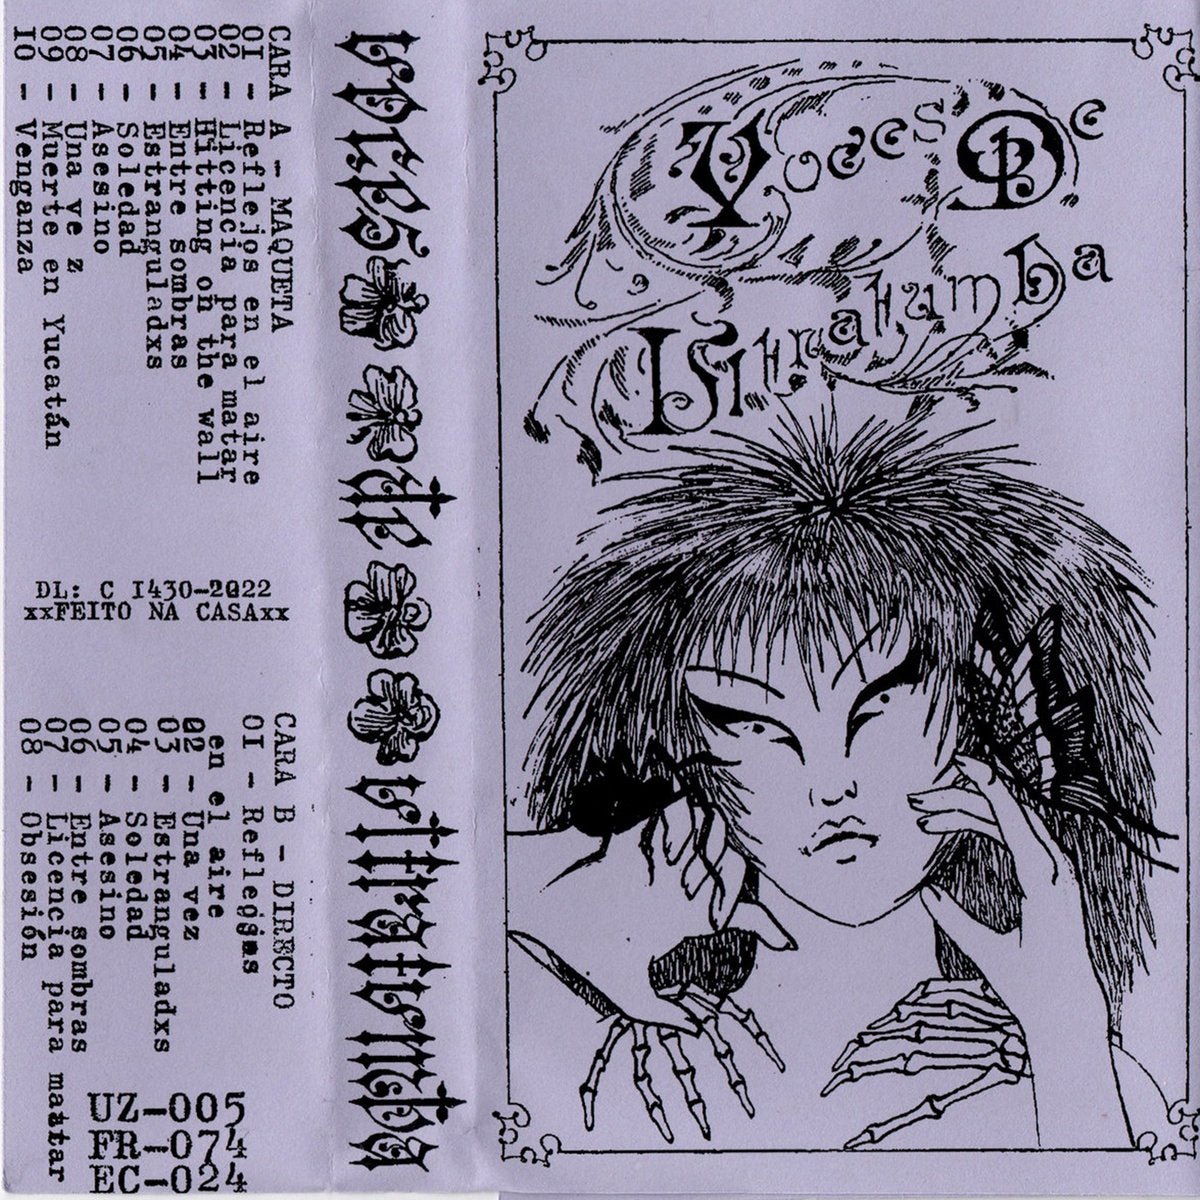 CARA A - MAQUETA
01 - Reflejos en el aire
02 - Licencia para matar
03 - Hitting on the wall
04 - Entre sombras
05 - Estranguladxs
06 - Soledad
07 - Asesino
08 - Una ve z
09 - Muerte en Yucatán
10 - Venganza
DL: C I430-2022
xxFEITO NA CASAxx
CARA B - DIRECTO
01 - Reflejos
en el aire
02 - Una vez
03 - Estranguladxs
04 - Soledad
05 - Asesino
06 - Entre sombras
07 - Licencia para matar
08 - Obsesión
UZ-005
FR-074
EC-024
voces de ultratumba
Voces De
Ultratumba